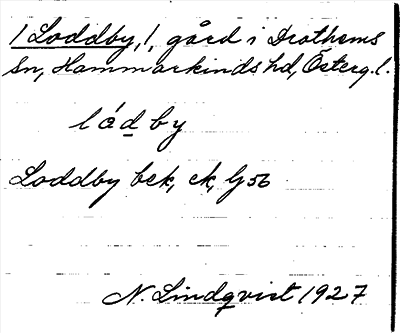 1 Loddby, 1, gård i Drothems
sn, Hammarkinds hd, Österg. l.
lá̱d̲by
Loddby bek, ek, G56
N. Lindqvist 1927